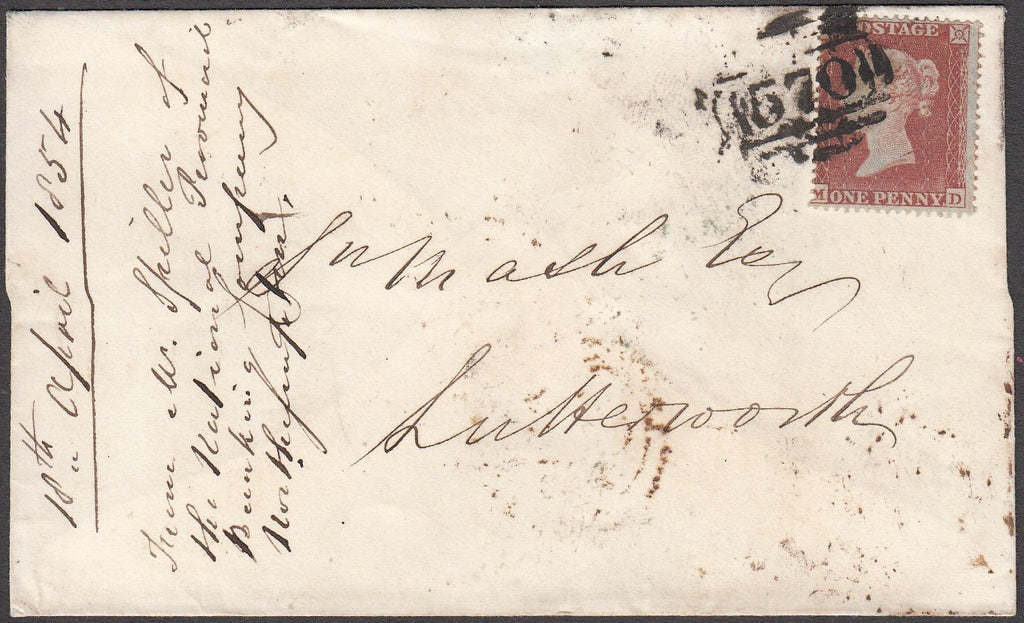 18th April 1854
From Mr. Spiller of
the National Provincial
Banking Company
Northampton.
POSTAGE
570
M ONE PENNY D
Mash Esq
Lutterworth